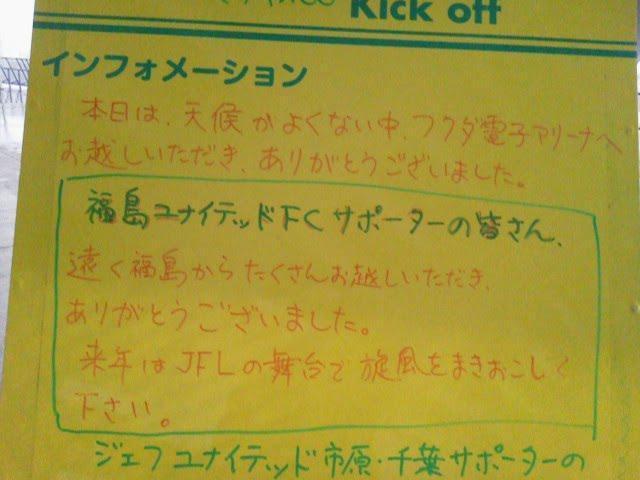 Kick off
インフォメーション
本日は、天候がよくない中、フクダ電子アリーナへ
お越しいただき、ありがとうございました。
福島ユナイテッドFCサポーターの皆さん、
遠く福島からたくさんお越しいただき、
ありがとうございました。
来年はJFLの舞台で旋風をまきおこして
下さい。
ジェフユナイテッド市原・千葉サポーターの